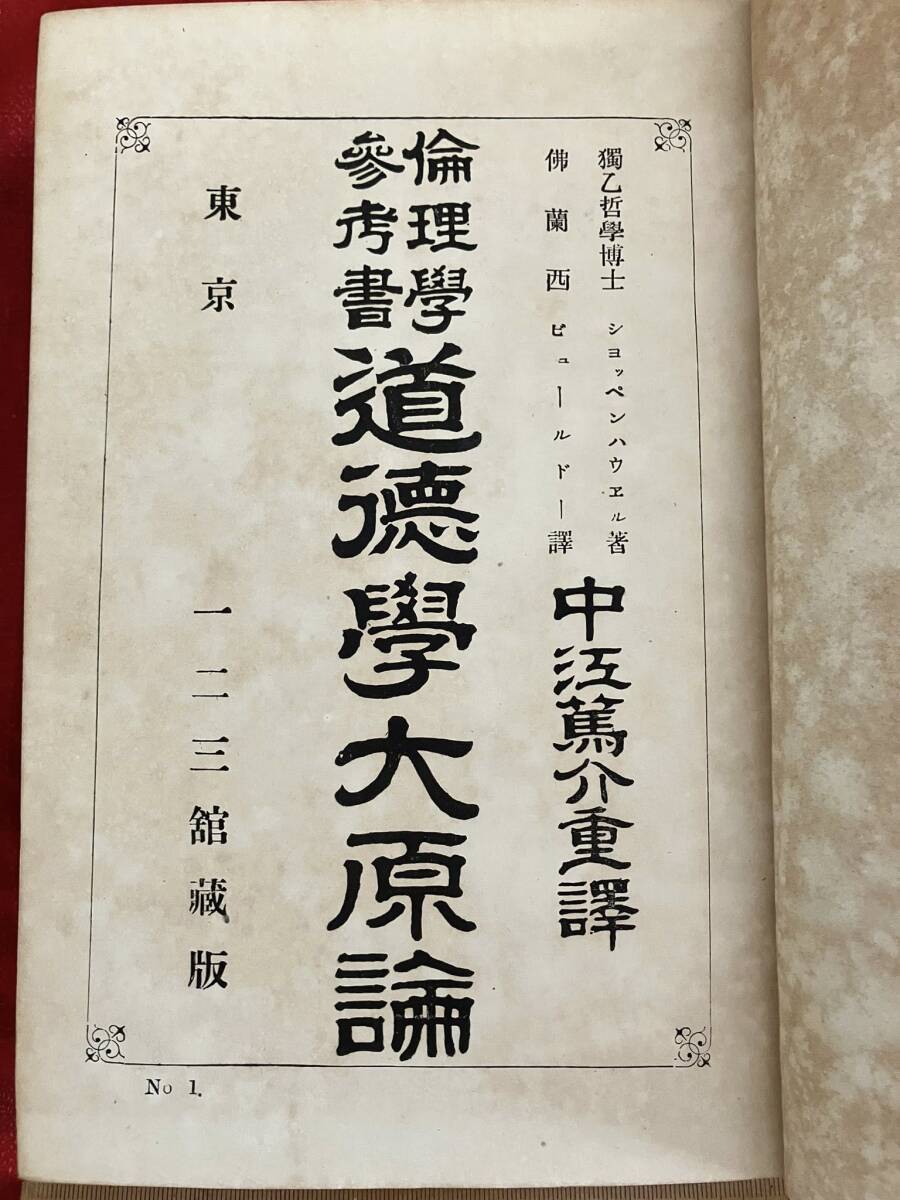 獨乙哲學博士 ショッペンハウヱル著
佛蘭西 ビュールドー譯
中江篤介重譯
倫理學
參考書
道德學大原論
東京 一二三舘藏版
No 1.